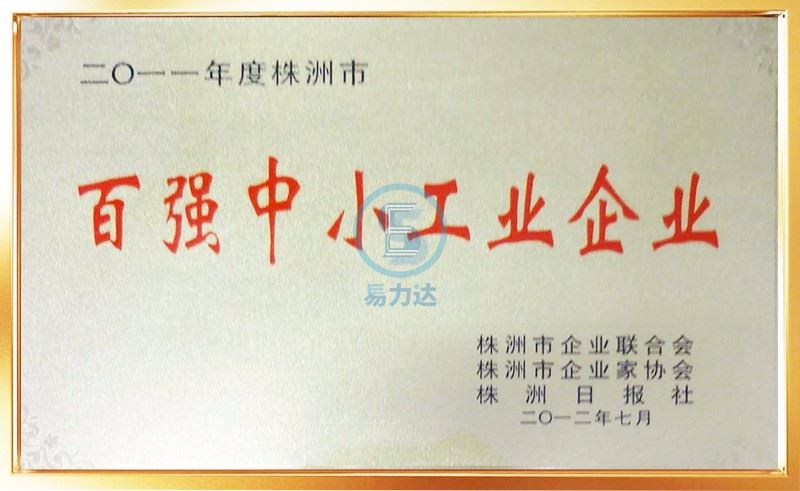 二〇一一年度株洲市
百强中小工业企业
易力达
株洲市企业联合会
株洲市企业家协会
株洲日报社
二〇一二年七月